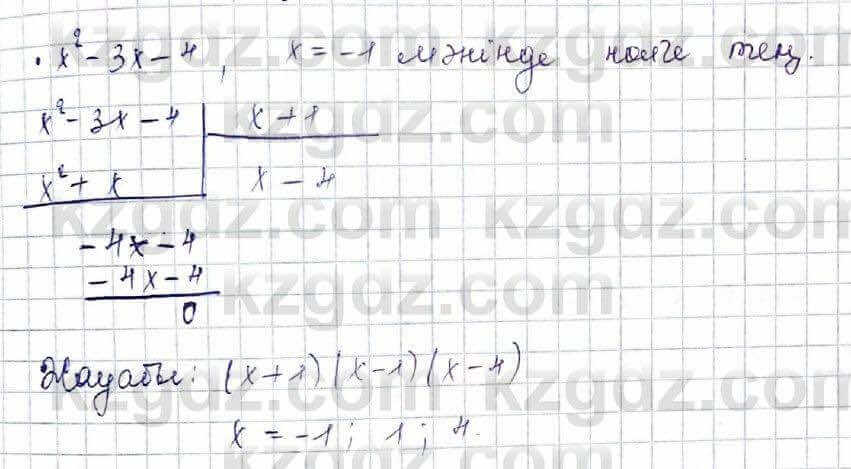 . x² - 3x - 4, x = -1 мәнінде нөлге тең.
x² - 3x - 4 | x + 1
x² + x | x - 4
- 4x - 4
- 4x - 4
0
Жауабы: (x+1)(x-1)(x-4)
x = -1; 1; 4.
kzgdz.com kzgdz.com
kzgdz.com kzgdz.com
kzgdz.com
kzgdz.com kzgdz.com